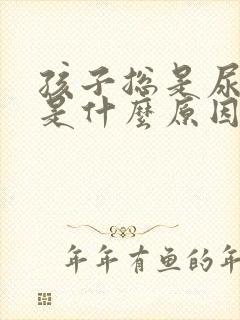 孩子总是尿
是什麼原因
年年有鱼的年